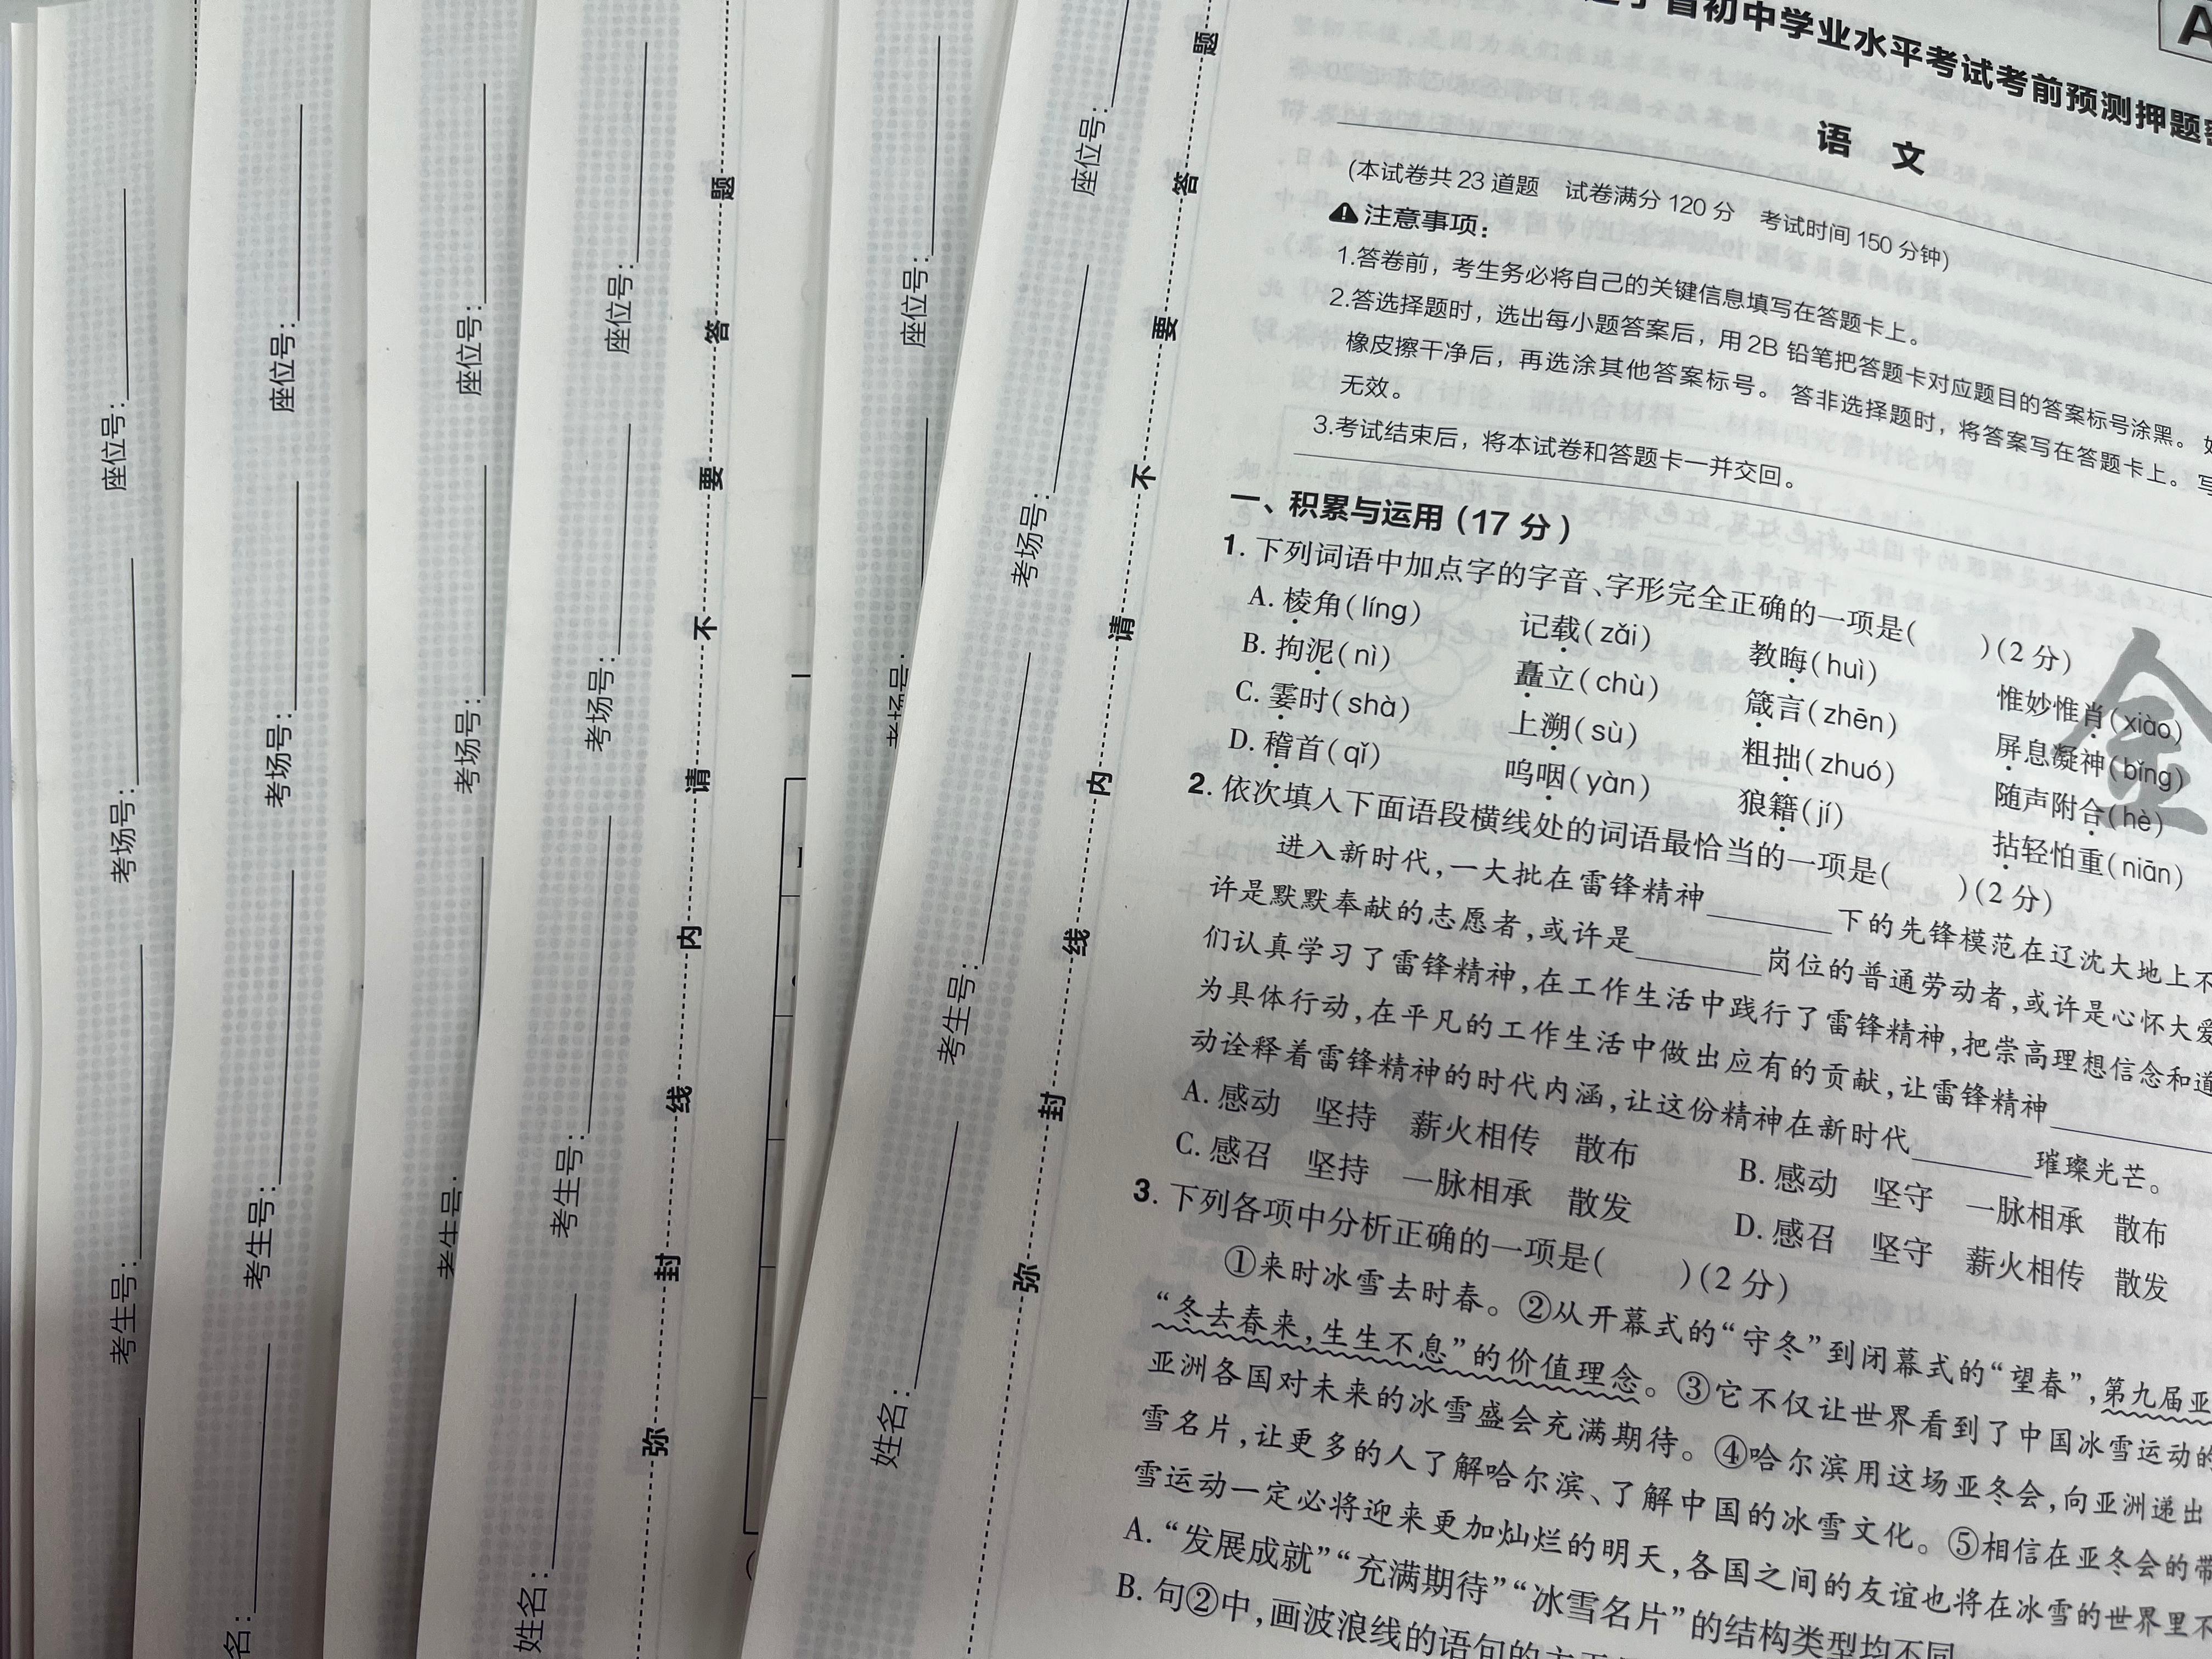 座位号：
考场号：
考生号：
座位号：
考场号：
考生号：
名：
座位号：
考场号：
考生号：
座位号：
考场号：
考生号：
姓名：
弥 封 线 内 请 不 要 答 题
座位号：
考场号：
座位号：
考场号：
考生号：
姓名：
弥 封 线 内 请 不 要 答 题
省初中学业水平考试考前预测押题
A
语 文
(本试卷共 23 道题 试卷满分 120 分 考试时间 150 分钟)
注意事项：
1.答卷前，考生务必将自己的关键信息填写在答题卡上。
2.答选择题时，选出每小题答案后，用 2B 铅笔把答题卡对应题目的答案标号涂黑。
橡皮擦干净后，再选涂其他答案标号。答非选择题时，将答案写在答题卡上。写
无效。
3.考试结束后，将本试卷和答题卡一并交回。
一、积累与运用(17 分)
1. 下列词语中加点字的字音、字形完全正确的一项是( )(2 分)
A. 棱角(líng) 记载(zǎi) 教晦(huì) 惟妙惟肖(xiào)
B. 拘泥(nì) 矗立(chù) 箴言(zhēn) 屏息凝神(bǐng)
C. 霎时(shà) 上溯(sù) 粗拙(zhuó) 随声附合(hè)
D. 稽首(qǐ) 呜咽(yàn) 狼籍(jí) 拈轻怕重(niān)
金
2. 依次填入下面语段横线处的词语最恰当的一项是( )(2 分)
进入新时代，一大批在雷锋精神______下的先锋模范在辽沈大地上不
许是默默奉献的志愿者，或许是______岗位的普通劳动者，或许是心怀大爱
们认真学习了雷锋精神，在工作生活中践行了雷锋精神，把崇高理想信念和道
为具体行动，在平凡的工作生活中做出应有的贡献，让雷锋精神______
动诠释着雷锋精神的时代内涵，让这份精神在新时代______璀璨光芒。
A. 感动 坚持 薪火相传 散布 B. 感动 坚守 一脉相承 散布
C. 感召 坚持 一脉相承 散发 D. 感召 坚守 薪火相传 散发
3. 下列各项中分析正确的一项是( )(2 分)
①来时冰雪去时春。②从开幕式的“守冬”到闭幕式的“望春”，第九届亚
“冬去春来，生生不息”的价值理念。③它不仅让世界看到了中国冰雪运动的
亚洲各国对未来的冰雪盛会充满期待。④哈尔滨用这场亚冬会，向亚洲递出
雪名片，让更多的人了解哈尔滨、了解中国的冰雪文化。⑤相信在亚冬会的带
雪运动一定必将迎来更加灿烂的明天，各国之间的友谊也将在冰雪的世界里不
A. “发展成就”“充满期待”“冰雪名片”的结构类型均不同
B. 句②中，画波浪线的语句的主干